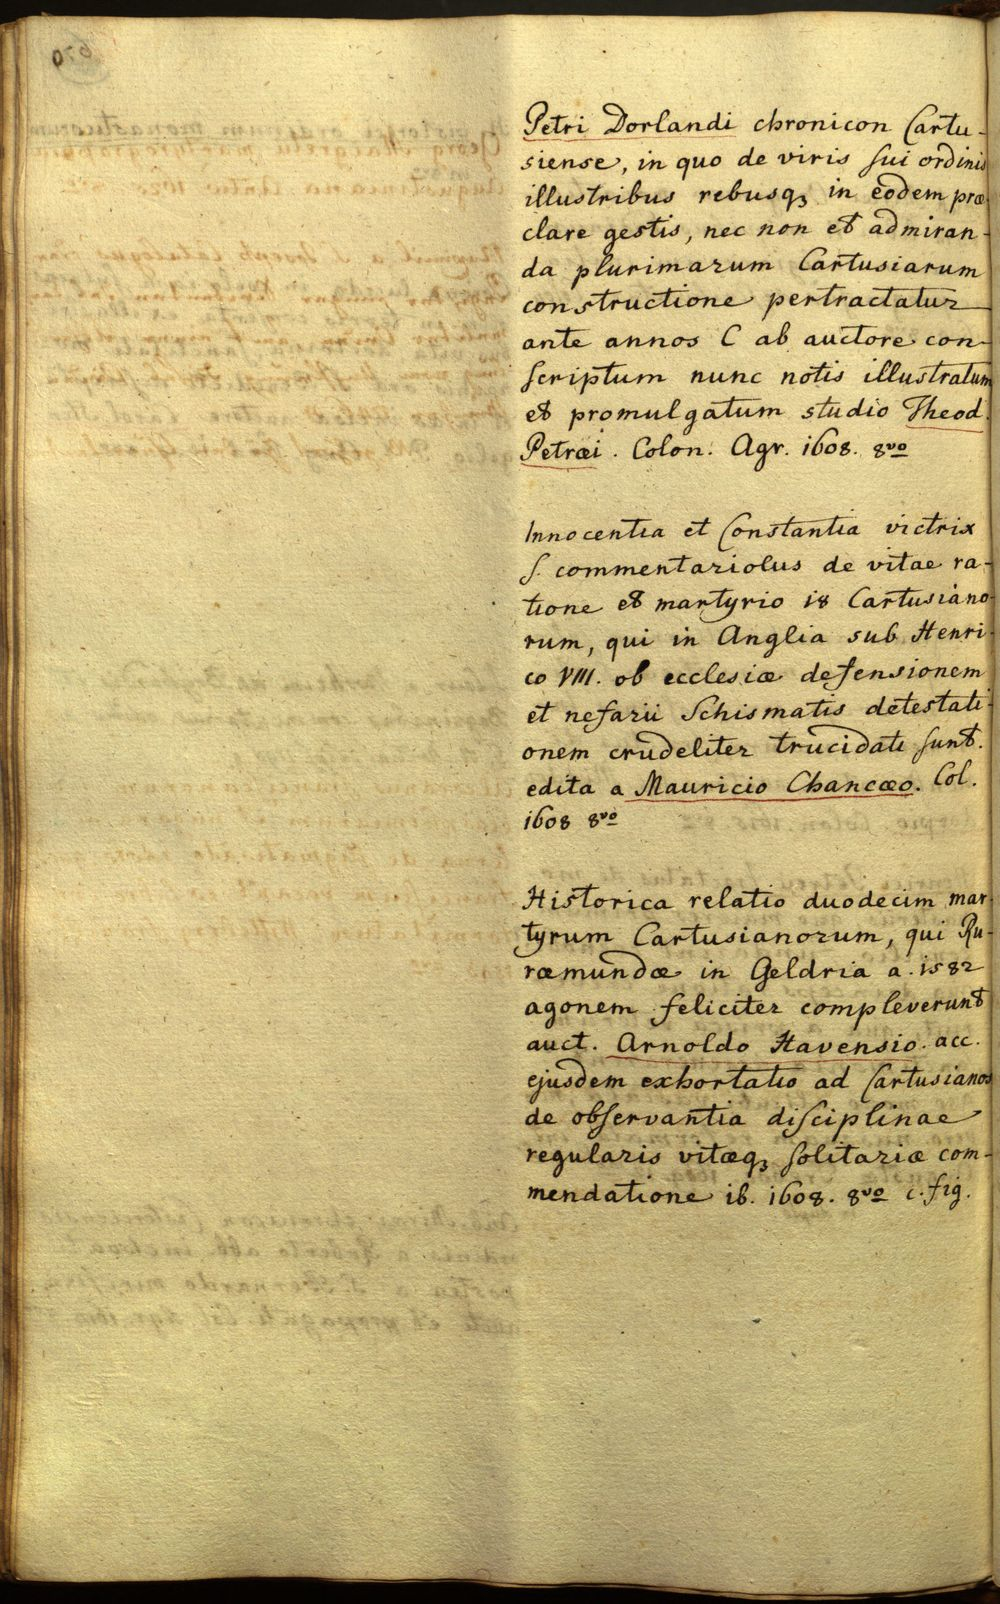 Petri Dorlandi chronicon Cartu-
siense, in quo de viris sui ordinis
illustribus rebusqꝫ in eodem præ
clare gestis, nec non et admiran-
da plurimarum Cartusiarum
constructione pertractatur
ante annos C ab auctore con-
scriptum nunc notis illustratum
et promulgatum studio Theod.
Petræi. Colon. Agr. 1608. 8vo
Innocentia et Constantia victrix
s. commentariolus de vitae ra-
tione et martyrio 18 Cartusiano-
rum, qui in Anglia sub Henri-
co VIII. ob ecclesiæ defensionem
et nefarii Schismatis detestati-
onem crudeliter trucidati sunt.
edita a Mauricio Chancæo. Col.
1608 8vo
Historica relatio duodecim mar-
tyrum Cartusianorum, qui Ru-
ræmundæ in Geldria a. 1582
agonem feliciter compleverunt
auct. Arnoldo Havensio. acc.
ejusdem exhortatio ad Cartusianos
de observantia disciplinae
regularis vitæqꝫ solitariæ com-
mendatione ib. 1608. 8vo c. fig.